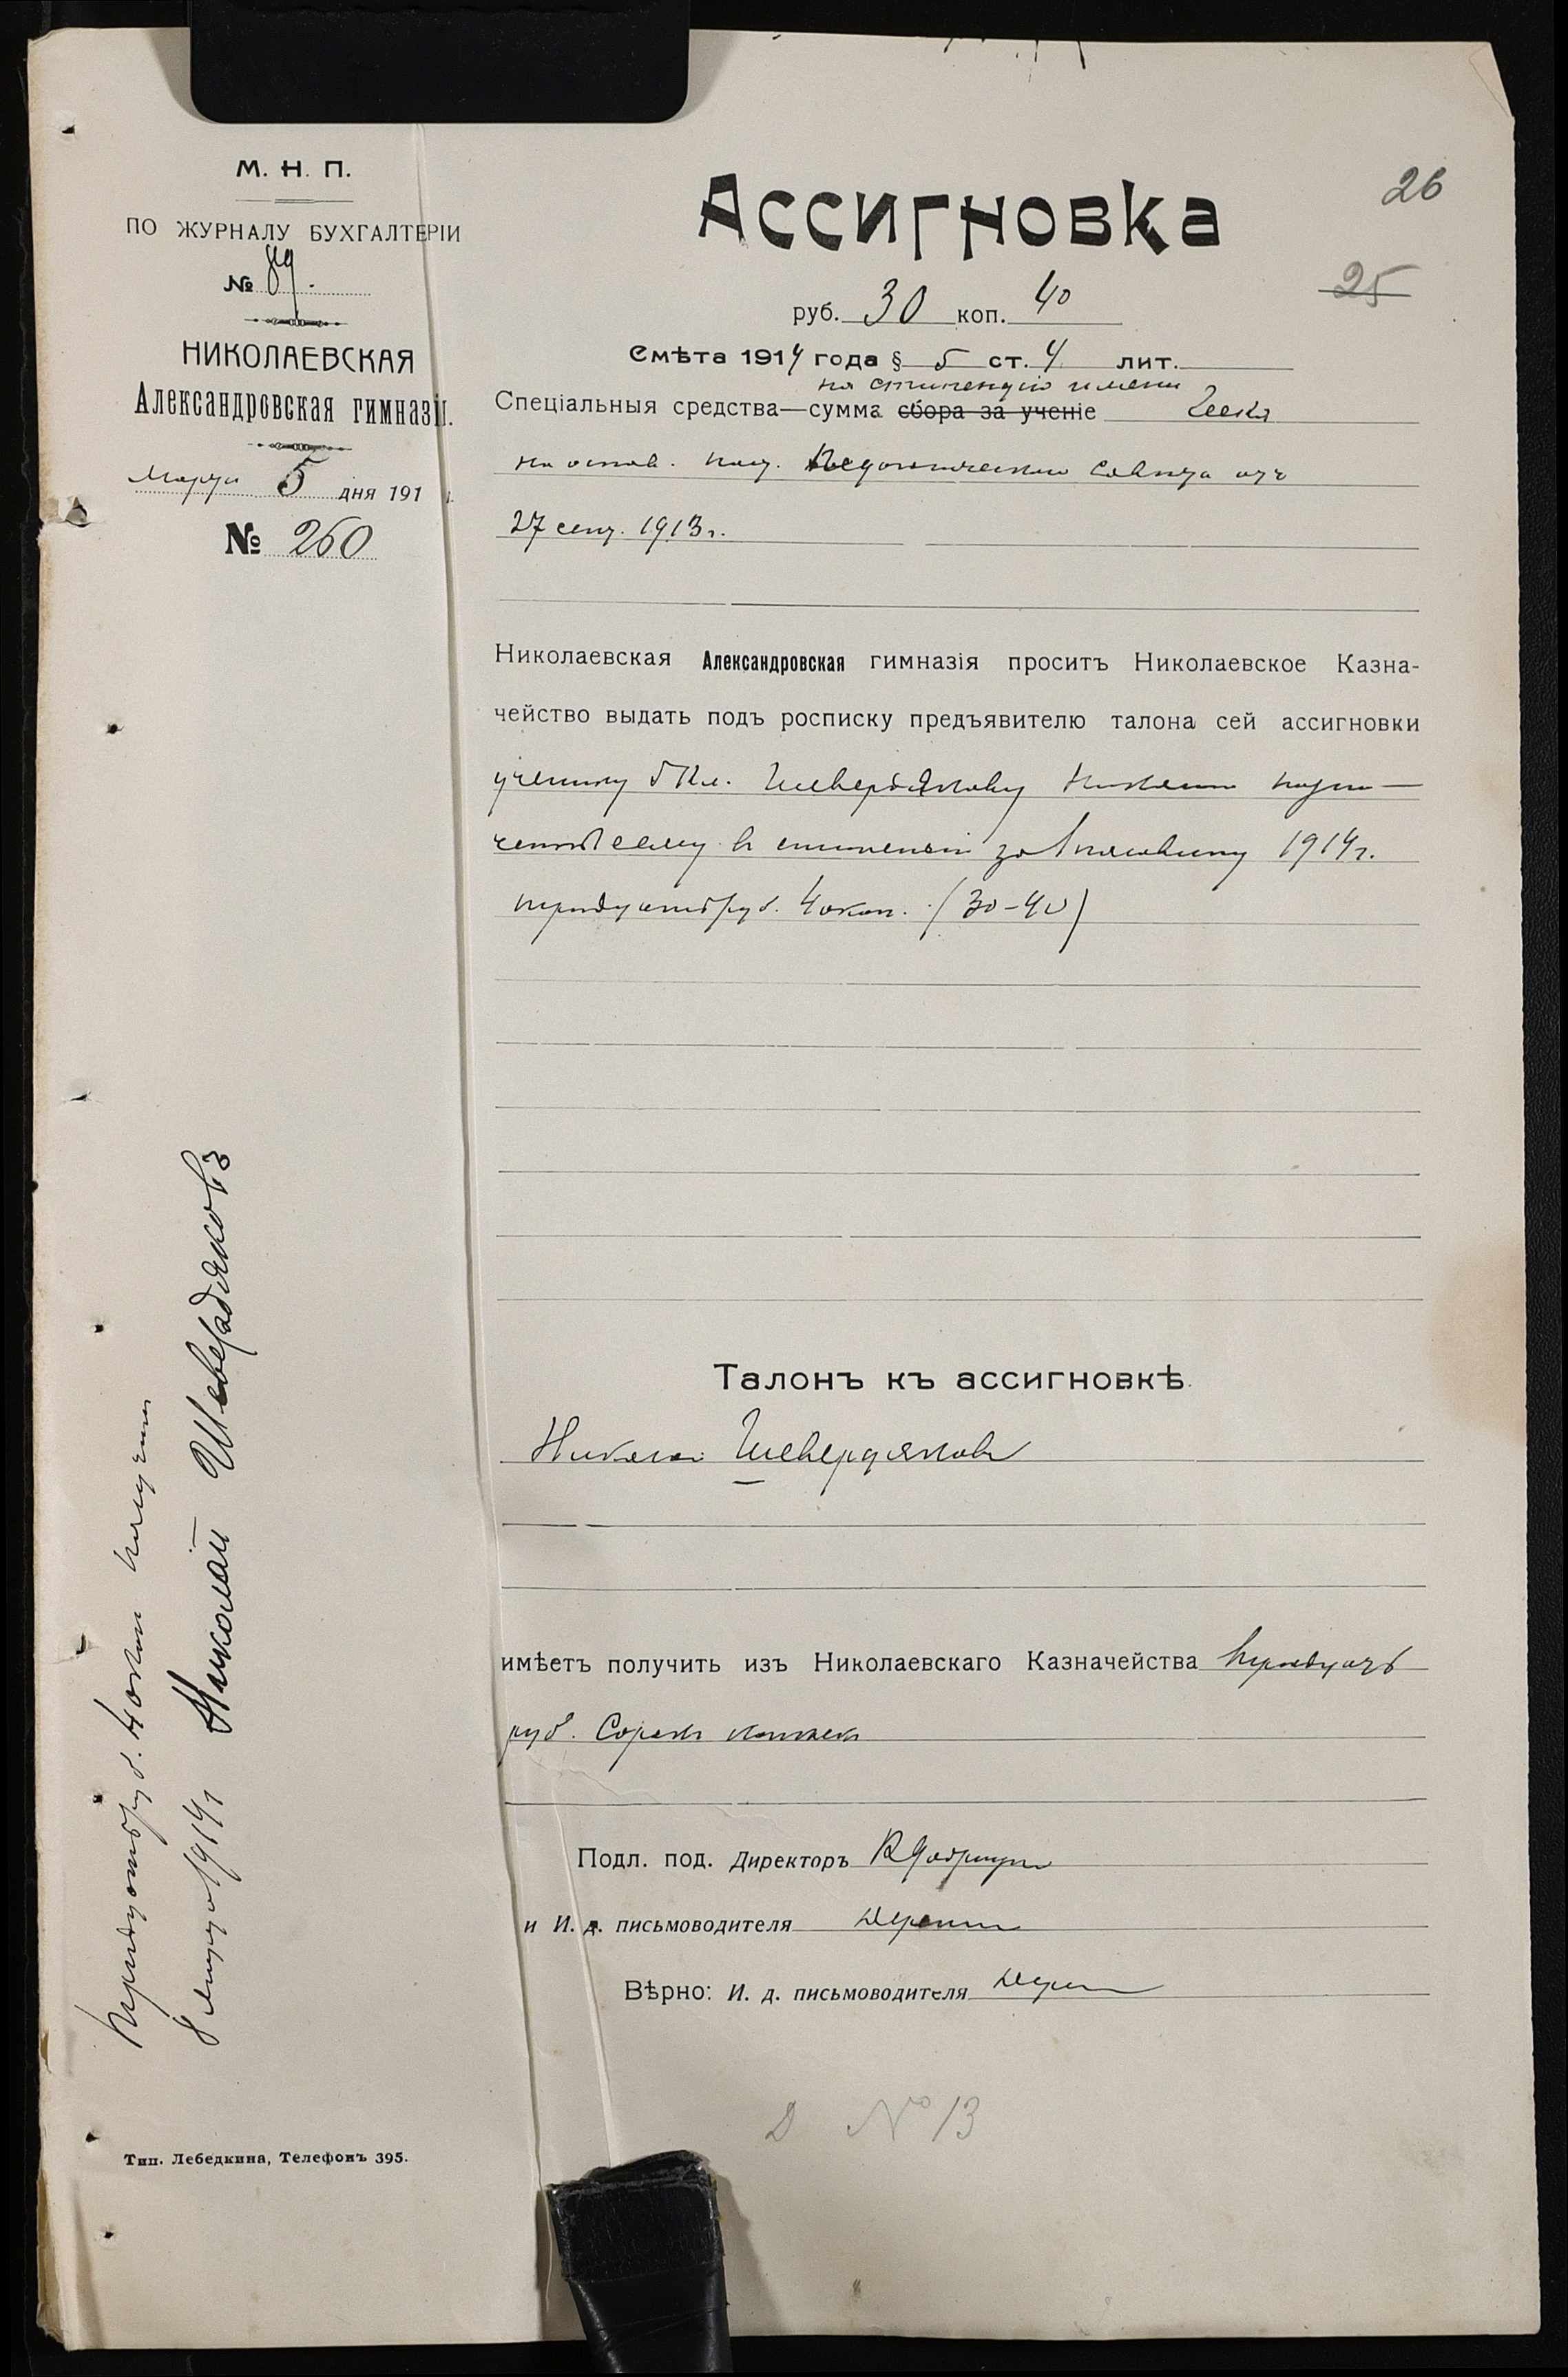 М. Н. П.
ПО ЖУРНАЛУ БУХГАЛТЕРІИ
№ 89.
НИКОЛАЕВСКАЯ
Александровская гимназія.
Марта 5 дня 191 г.
№ 260
26
Ассигновка
25
руб. 30 коп. 40
Смѣта 1914 года § 5 ст. 4 лит.
на стипендію имени
Спеціальныя средства—сумма сбора за ученіе
на основ. пост. Педагогическаго Совѣта отъ
27 сент. 1913 г.
Николаевская Александровская гимназія проситъ Николаевское Казна-
чейство выдать подъ росписку предъявителю талона сей ассигновки
ученику 5 кл. Шевердякову Николаю
стипендіи за 1 половину 1914 г.
тридцать руб. 40 коп. (30-40)
Талонъ къ ассигновкѣ.
Николай Шевердяковъ
имѣетъ получить изъ Николаевскаго Казначейства тридцать
руб. Сорокъ копѣекъ
Подл. под. Директоръ
и И. д. письмоводителя
Вѣрно: И. д. письмоводителя
Д №13
Тридцать руб. 40 коп получилъ
8 марта 1914 г Николай Шевердяковъ
Тип. Лебедкина, Телефонъ 395.